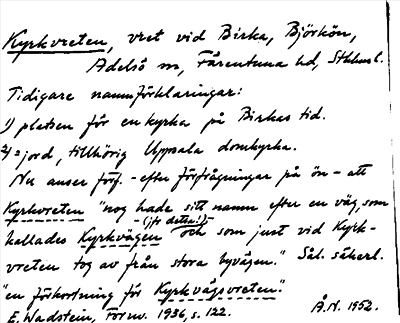 Kyrkvreten, vret vid Birka, Björkön,
Adelsö sn, Färentuna hd, Sthlms l.
Tidigare namnförklaringar:
1) platsen för en kyrka på Birkas tid.
2) = jord, tillhörig Uppsala domkyrka.
Nu anser förf. - efter förfrågningar på ön - att
Kyrkvreten "nog hade sitt namn efter en väg, som
kallades Kyrkvägen (jfr detta!), och som just vid Kyrk-
vreten tog av från stora byvägen." Sål. säkerl.
"en förkortning för Kyrkvägsvreten".
E. Wadstein, Fornv. 1936, s. 122. Å.N. 1952.